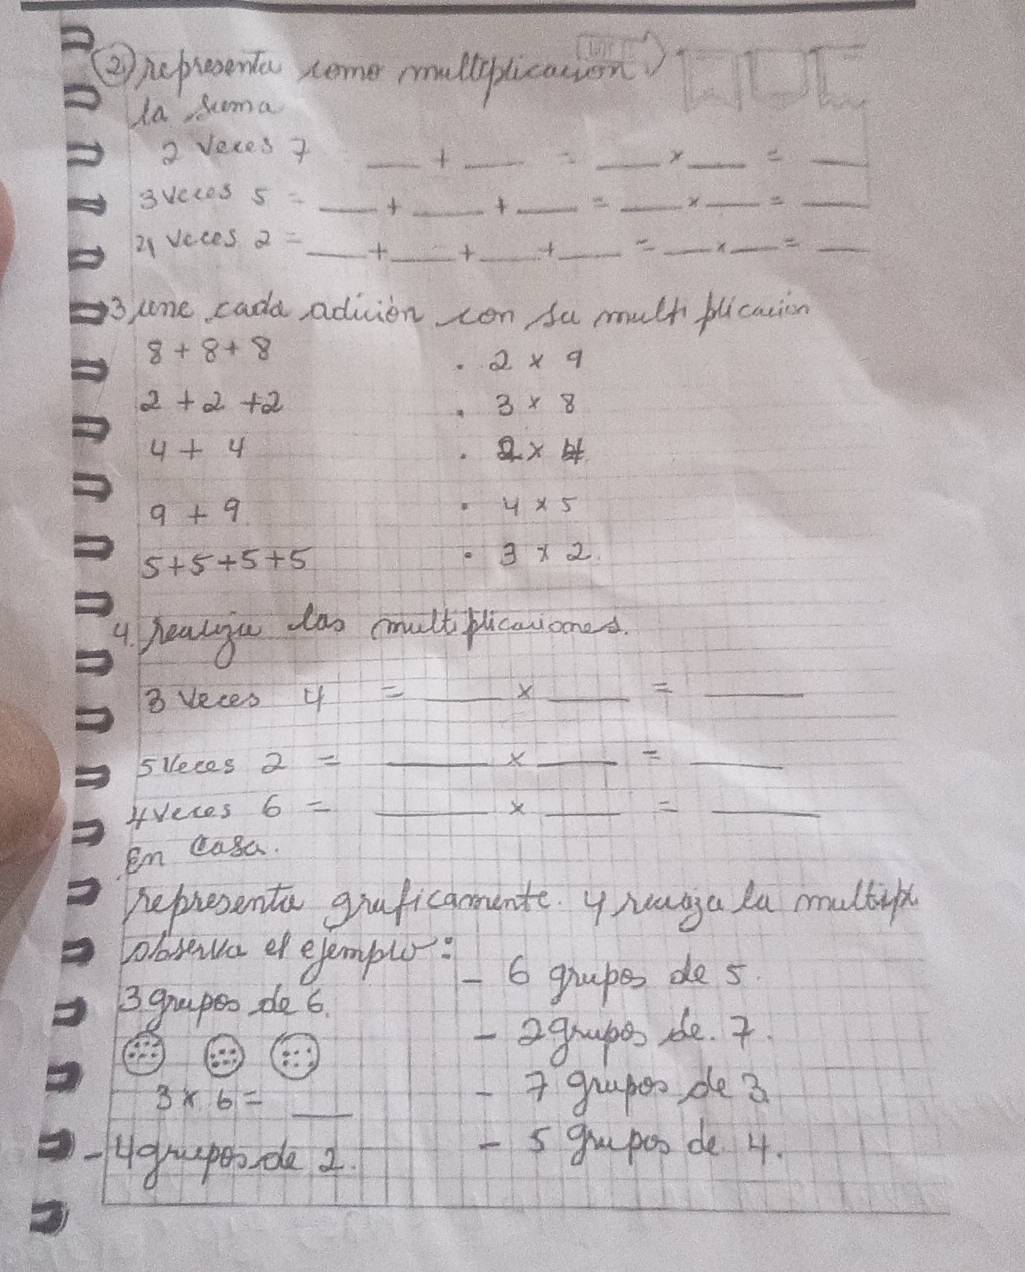 ② representa como multiplicación
la suma
2 veces 7 ___ + ___ = ___ x ___ = ___
3 veces 5 = ___ + ___ + ___ = ___ x ___ = ___
4 veces 2 = ___ + ___ + ___ + ___ = ___ x ___ = ___
3 une cada adición con su multiplicación
8 + 8 + 8 . 2 x 9
2 + 2 + 2 . 3 x 8
4 + 4 . 2 x 4
9 + 9 . 4 x 5
5 + 5 + 5 + 5 . 3 x 2.
4. realiza las multiplicaciones.
3 veces 4 = ___ x ___ = ___
5 veces 2 = ___ x ___ = ___
4 veces 6 = ___ x ___ = ___
En casa.
representa graficamente. y realiza la multipl
observa el ejemplo:
3 grupos de 6.
3 x 6 = ___
- 4 grupos de 2.
- 6 grupos de 5.
- 2 grupos de. 7.
- 7 grupos de 3
- 5 grupos de 4.